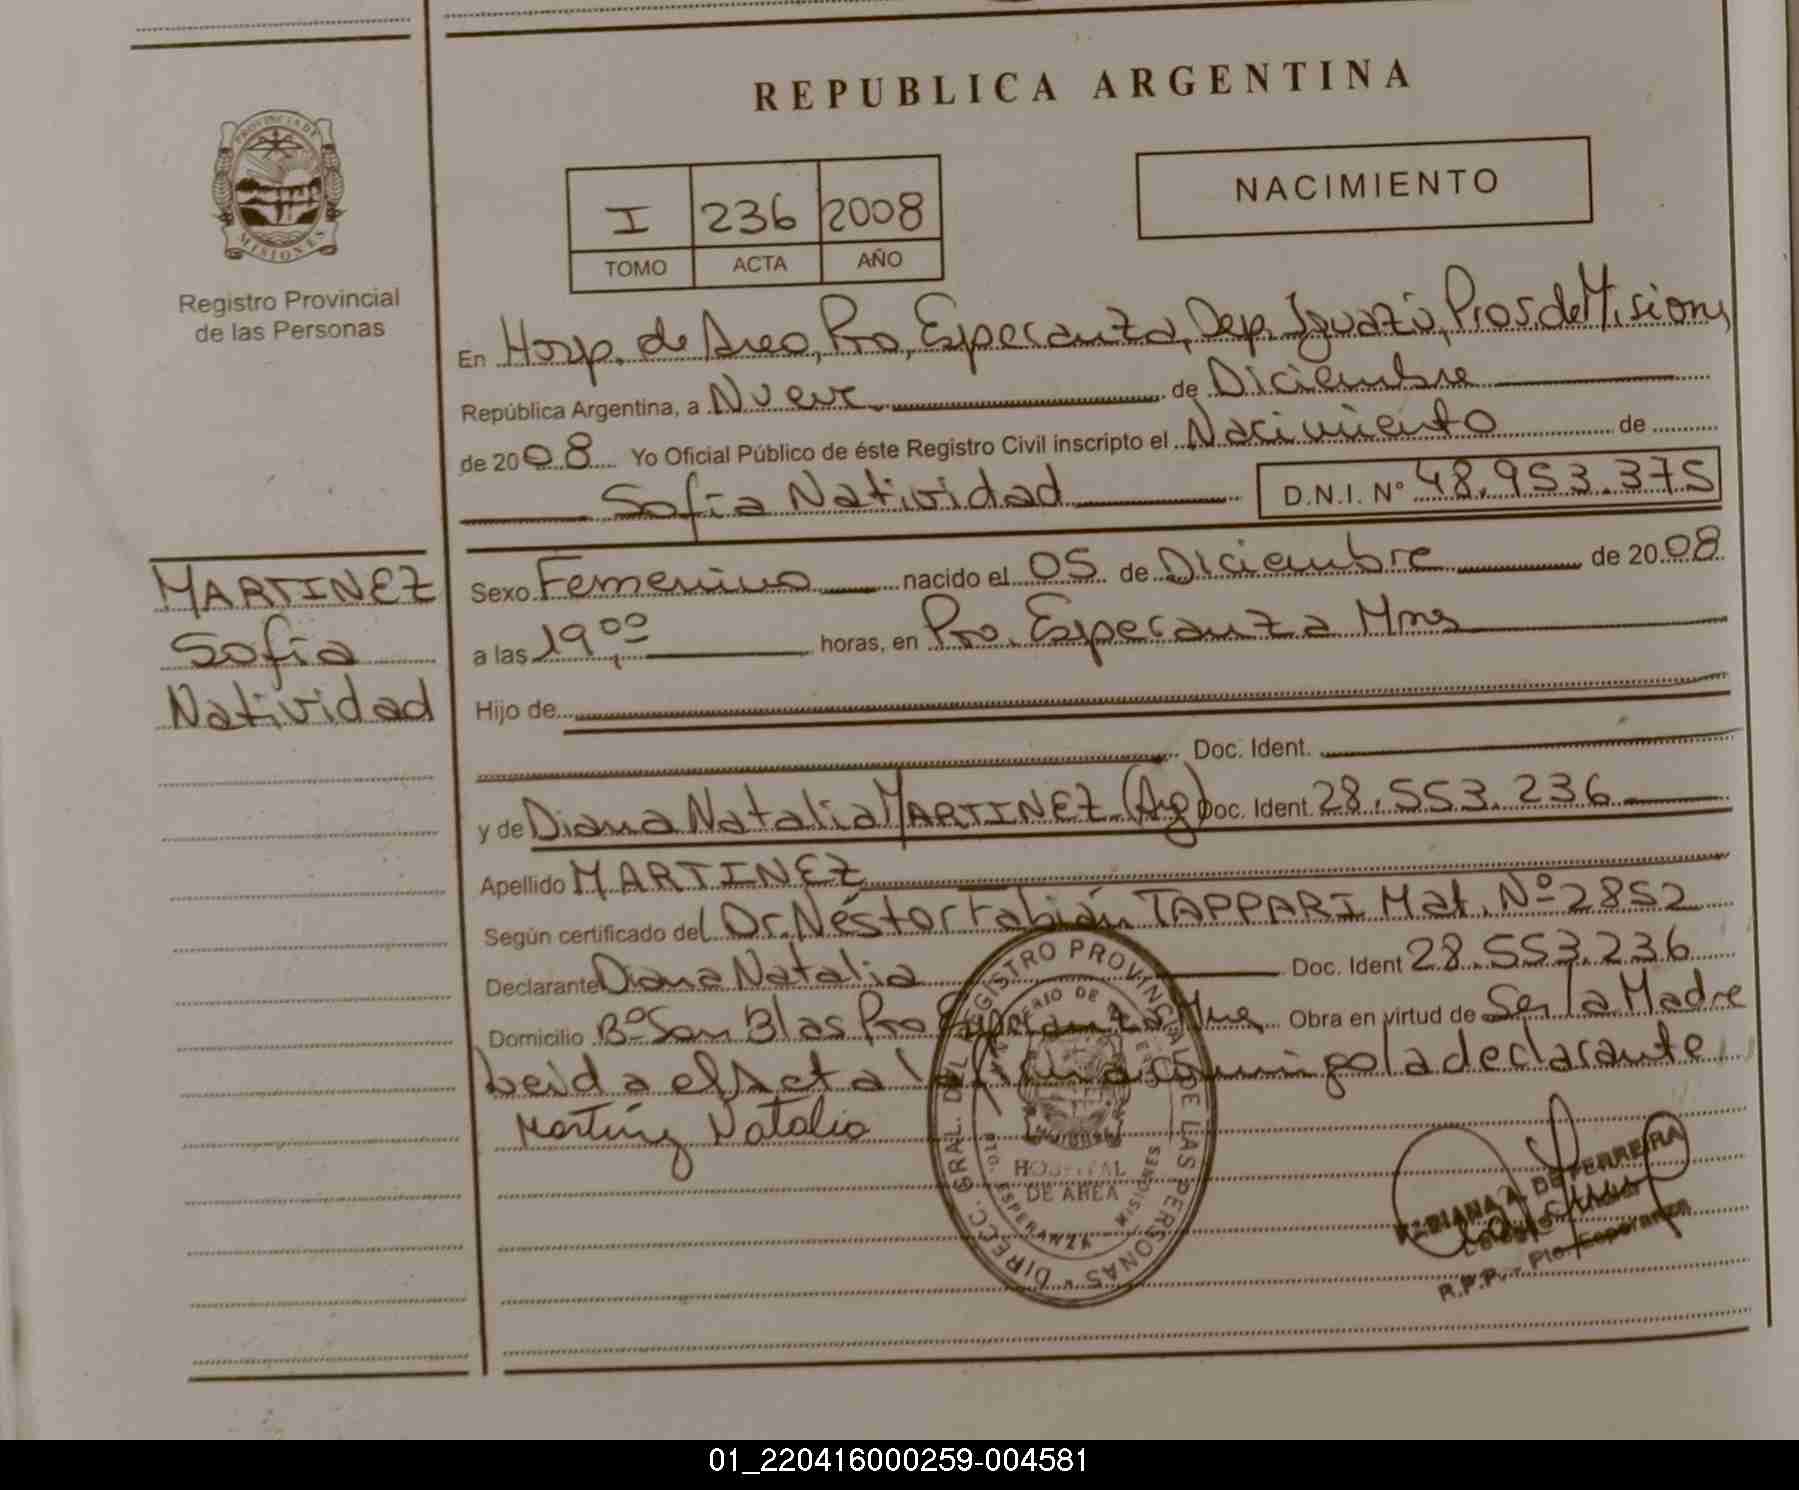 REPUBLICA ARGENTINA
PROVINCIA DE
MISIONES
Registro Provincial
de las Personas
NACIMIENTO
I 236 2008
TOMO ACTA AÑO
En Hosp. de Area, Pto, Esperanza, Dep. Iguazú, Prov. de Misiones
República Argentina, a Nueve de Diciembre
de 2008 Yo Oficial Público de éste Registro Civil inscripto el Nacimiento de
Sofía Natividad D.N.I. N° 48.953.375
MARTINEZ
Sofía
Natividad
Sexo Femenino nacido el 05 de Diciembre de 2008
a las 19,00 horas, en Pto. Esperanza Mnes
Hijo de
Doc. Ident.
y de Diana Natalia MARTINEZ (Arg) Doc. Ident. 28.553.236
Apellido MARTINEZ
Según certificado del Dr. Néstor Fabián TAPPARI Mat. Nº 2852
Declarante Diana Natalia Doc. Ident 28.553.236
Domicilio Bº San Blas Pto Esperanza Mnes Obra en virtud de Ser la Madre
Leida el Acta la firma conmigo la declarante
Martínez Natalia
DIRECC. GRAL. DEL REGISTRO PROVINCIAL DE LAS PERSONAS
HOSPITAL
DE AREA
PTO. ESPERANZA - MISIONES
DIANA A. DE FERREIRA
R.P.P. - Pto. Esperanza
01_220416000259-004581